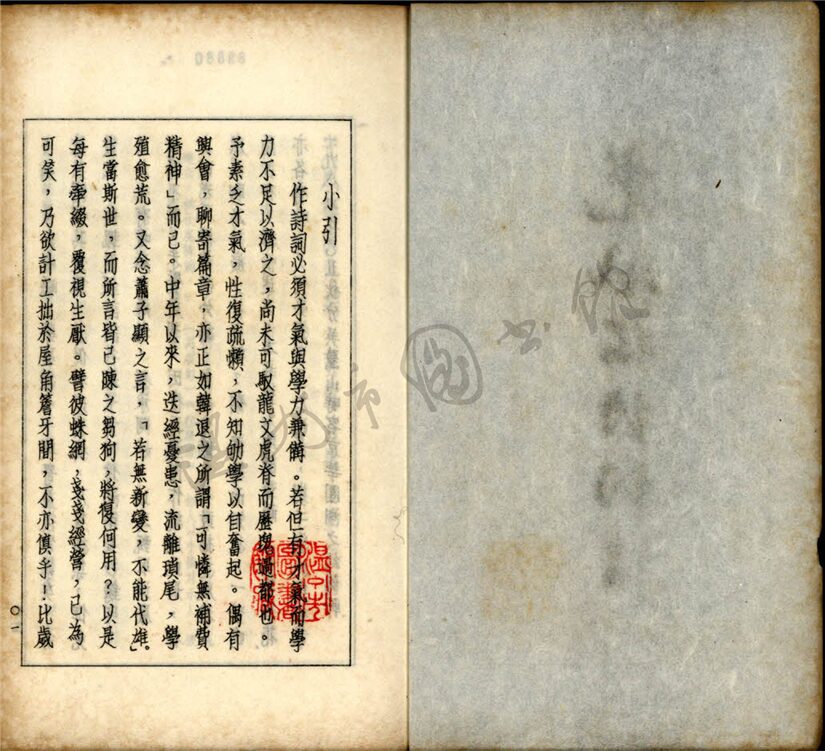 小引
作詩詞必須才氣與學力兼備。若但有才氣而學
力不足以濟之，尚未可馭龍文虎脊而歷塊過都也。
予素乏才氣，性復疏懶，不知劬學以自奮起。偶有
興會，聊寄篇章，亦正如韓退之所謂「可憐無補費
精神」而已。中年以來，迭經憂患，流離瑣尾，學
殖愈荒。又念蕭子顯之言，「若無新變，不能代雄」。
生當斯世，而所言皆已陳之芻狗，將復何用？以是
每有牽綴，覆視生厭。譬彼蛛網，戔戔經營，已為
可笑，乃欲計工拙於屋角簷牙間，不亦傎乎！比歲
〇一
温州市图书馆